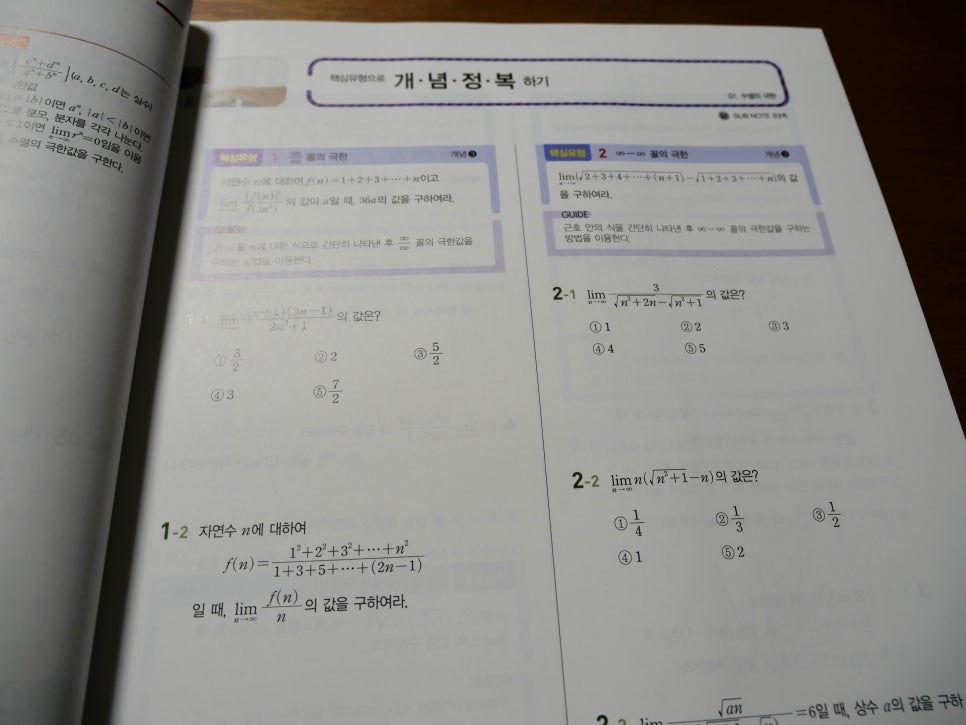 cⁿ+dⁿ
aⁿ+bⁿ
} (a, b, c, d는 실수)
|b|이면 aⁿ, |a|<|b|이면
분모, 분자를 각각 나눈다.
<1이면 lim rⁿ=0임을 이용
수열의 극한값을 구한다.
핵심유형으로 개·념·정·복 하기
01. 수열의 극한
SUB NOTE
핵심유형 1 ∞/∞ 꼴의 극한 개념❸
자연수 n에 대하여 f(n)=1+2+3+⋯+n이고
lim {f(n)}²/f(3n²) 의 값이 a일 때, 36a의 값을 구하여라.
GUIDE
n에 대한 식으로 간단히 나타낸 후 ∞/∞ 꼴의 극한값을
구하는 방법을 이용한다.
lim (n+1)(3n-1)/2n²+1 의 값은?
① 3/2 ② 2 ③ 5/2
④ 3 ⑤ 7/2
1-2 자연수 n에 대하여
f(n)= 1²+2²+3²+⋯+n² / 1+3+5+⋯+(2n-1)
일 때, lim n→∞ f(n)/n 의 값을 구하여라.
핵심유형 2 ∞-∞ 꼴의 극한 개념❸
lim n→∞ {√2+3+4+⋯+(n+1) - √1+2+3+⋯+n}의 값
을 구하여라.
GUIDE
근호 안의 식을 간단히 나타낸 후 ∞-∞ 꼴의 극한값을 구하는
방법을 이용한다.
2-1 lim n→∞ 3/√n²+2n-√n²+1 의 값은?
① 1 ② 2 ③ 3
④ 4 ⑤ 5
2-2 lim n→∞ n(√n²+1-n)의 값은?
① 1/4 ② 1/3 ③ 1/2
④ 1 ⑤ 2
lim √an =6일 때, 상수 a의 값을 구하